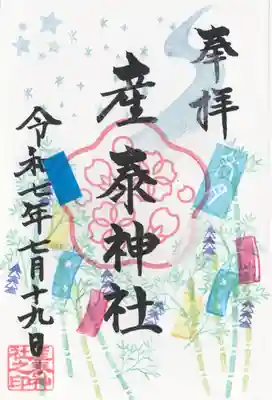 奉拝
産泰神社
令和七年七月十九日